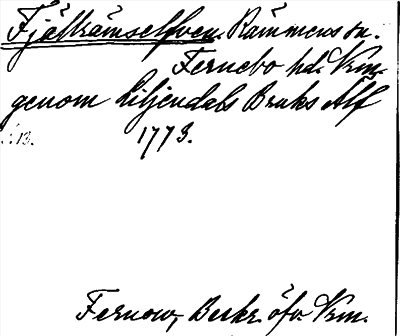 Fjälrämselfven. Rämmens sn.
Fernebo hd. Vrm.
genom Liljendals Bruks Älf
1773.
Fernow, Beskr. öfv. Vrm.